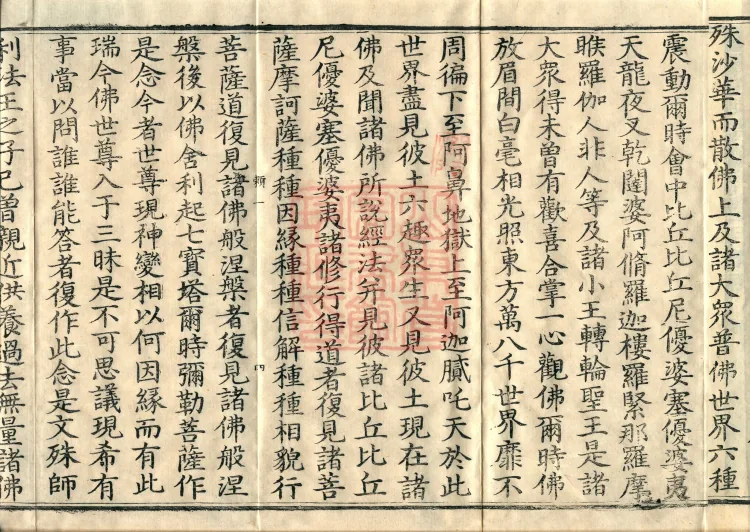 殊沙華而散佛上及諸大衆普佛世界六種
震動爾時會中比丘比丘尼優婆塞優婆夷
天龍夜叉乾闥婆阿脩羅迦樓羅緊那羅摩
睺羅伽人非人等及諸小王轉輪聖王是諸
大衆得未曾有歡喜合掌一心觀佛爾時佛
放眉間白毫相光照東方萬八千世界靡不
周徧下至阿鼻地獄上至阿迦膩吒天於此
世界盡見彼土六趣衆生又見彼土現在諸
佛及聞諸佛所說經法并見彼諸比丘比丘
尼優婆塞優婆夷諸修行得道者復見諸菩
薩摩訶薩種種因緣種種信解種種相貌行
菩薩道復見諸佛般涅槃者復見諸佛般涅
槃後以佛舍利起七寶塔爾時彌勒菩薩作
是念今者世尊現神變相以何因緣而有此
瑞今佛世尊入于三昧是不可思議現希有
事當以問誰誰能答者復作此念是文殊師
利法王之子已曾親近供養過去無量諸佛
四